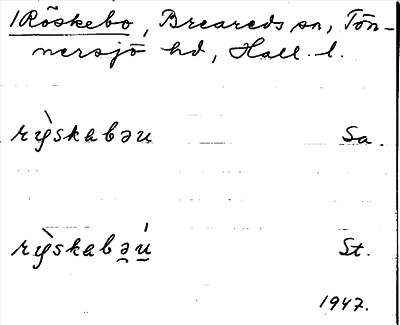 1 Röskebo, Breareds sn, Tön-
nersjö hd, Hall. l.
rỳskabəu Sa.
rỳskabə̲ú̲ St.
1947.